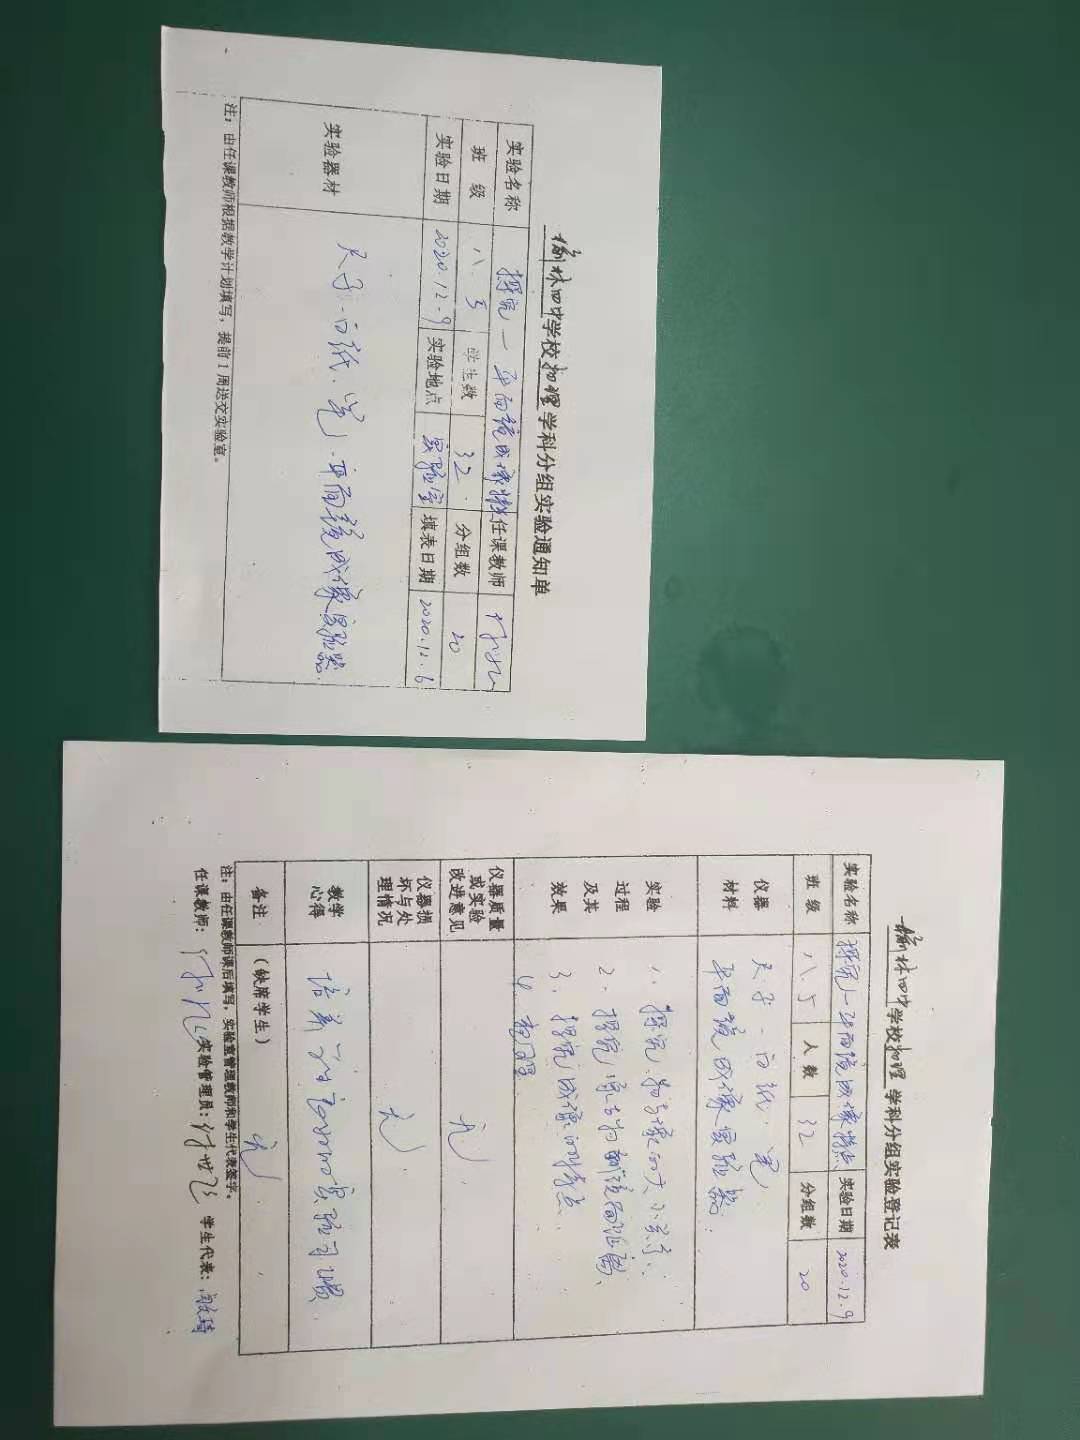 榆林四中学校物理学科分组实验通知单
实验名称 探究一平面镜成像特 任课教师
班 级 八.5 学生数 32. 分组数 20
实验日期 2020.12.9 实验地点 实验室 填表日期 2020.12.6
实验器材 尺子.白纸.笔.平面镜成像实验器.
注：由任课教师根据教学计划填写，提前1周送交实验室。
榆林四中学校物理学科分组实验登记表
实验名称 探究一平面镜成像特点 实验日期 2020.12.9
班 级 八.5 人 数 32 分组数 20
仪器 尺子.白纸.笔
材料 平面镜成像实验器.
实验 1.探究物与像的大小关系.
过程 2.探究像与物到镜面距离.
及其 3.探究成像的特点.
效果 4.整理
仪器质量
或实验
改进意见 无
仪器损
坏与处
理情况 无.
教学
心得 培养了自己的实验习惯.
备注 （缺席学生） 无
注：由任课教师课后填写，实验室管理教师和学生代表签字。
任课教师： 实验管理员： 学生代表：